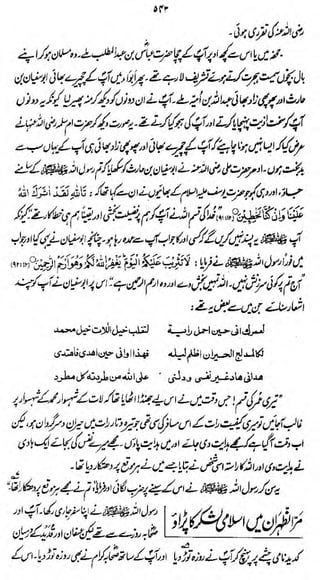 ۵۴۳
رضی اللہ عنہ کی تقرری ہوئی۔
جحفہ میں یا اس سے کچھ اوپر آپ کے چچا حضرت عباسؓ بن عبدالمطلب ملے۔ وہ مسلمان ہو کر اپنے
بال بچوں سمیت ہجرت کرتے ہوئے تشریف لا رہے تھے۔ پھر ابواء میں آپ کے چچیرے بھائی ابوسفیان بن
حارث اور پھوپھی زاد بھائی عبداللہ بن امیہ ملے۔ آپ نے ان دونوں کو دیکھ کر منہ پھیر لیا کیونکہ یہ دونوں
آپ کو سخت اذیت پہنچایا کرتے اور آپ کی ہجو کیا کرتے تھے۔ یہ صورت دیکھ کر حضرت ام سلمہ رضی اللہ عنہا نے
عرض کی کہ ایسا نہیں ہونا چاہیے کہ آپ کے چچیرے بھائی اور پھوپھی زاد بھائی ہی آپ کے یہاں سب سے
بدبخت ہوں۔ ادھر حضرت علی رضی اللہ عنہ نے ابوسفیان بن حارث کو سکھایا کہ تم رسول اللہ ﷺ کے سامنے
جاؤ اور وہی کہو جو حضرت یوسف علیہ السلام کے بھائیوں نے ان سے کہا تھا کہ: تَاللَّهِ لَقَدْ آثَرَكَ اللَّهُ
عَلَيْنَا وَإِنْ كُنَّا لَخَاطِئِينَ (۹۱:۱۲) "خدا کی قسم اللہ نے آپ کو ہم پر فضیلت بخشی اور یقیناً ہم ہی خطاکار تھے" کیونکہ
آپ ﷺ یہ پسند نہیں کریں گے کہ کسی اور کا جواب آپ سے عمدہ رہا ہو۔ چنانچہ ابوسفیان نے یہی کیا اور جواب
میں فوراً رسول اللہ ﷺ نے فرمایا: لَا تَثْرِيبَ عَلَيْكُمُ الْيَوْمَ يَغْفِرُ اللَّهُ لَكُمْ وَهُوَ أَرْحَمُ الرَّاحِمِينَ (۹۲:۱۲)
"آج تم پر کوئی سرزنش نہیں۔ اللہ تمہیں بخش دے اور وہ ارحم الراحمین ہے"۔ اس پر ابوسفیان نے آپ کو چند
اشعار سنائے جن میں سے بعض یہ تھے:
لعمرك انی حین احمل رایة لتغلب خیل اللات خیل محمد
لكالمدلج الحیران اظلم لیله فهذا اوانی حین اهدی فاهتدی
هدانی هاد غیر نفسی ودلنی علی الله من طردته كل مطرد
"تیری عمر کی قسم! جس وقت میں نے اس لیے جھنڈا اٹھایا تھا کہ لات کے شہسوار محمد کے شہسوار پر
غالب آجائیں تو میری کیفیت رات کے اس مسافر کی سی تھی جو تیرہ و تار رات میں حیران و سرگرداں ہو، لیکن
اب وقت آگیا ہے کہ مجھے ہدایت دی جائے اور میں ہدایت پاؤں۔ مجھے میرے نفس کی بجائے ایک ہادی
نے ہدایت دی اور اللہ کا راستہ اسی شخص نے بتایا جسے میں نے ہر موقع پر دھتکار دیا تھا۔
یہ سن کر رسول اللہ ﷺ نے اس کے سینے پر ضرب لگائی اور فرمایا، تم نے مجھے ہر موقع پر دھتکارا تھا۔"
مَرّ الظہران میں اسلامی لشکر کا پڑاؤ
رسول اللہ ﷺ نے اپنا سفر جاری رکھا۔ آپ اور
صحابہ روزے سے تھے لیکن عسفان اور قدید کے درمیان
کدید نامی چشمے پر پہنچ کر آپ نے روزہ توڑ دیا اور آپ کے ساتھ صحابہ کرام نے بھی روزہ توڑ دیا۔ اس کے